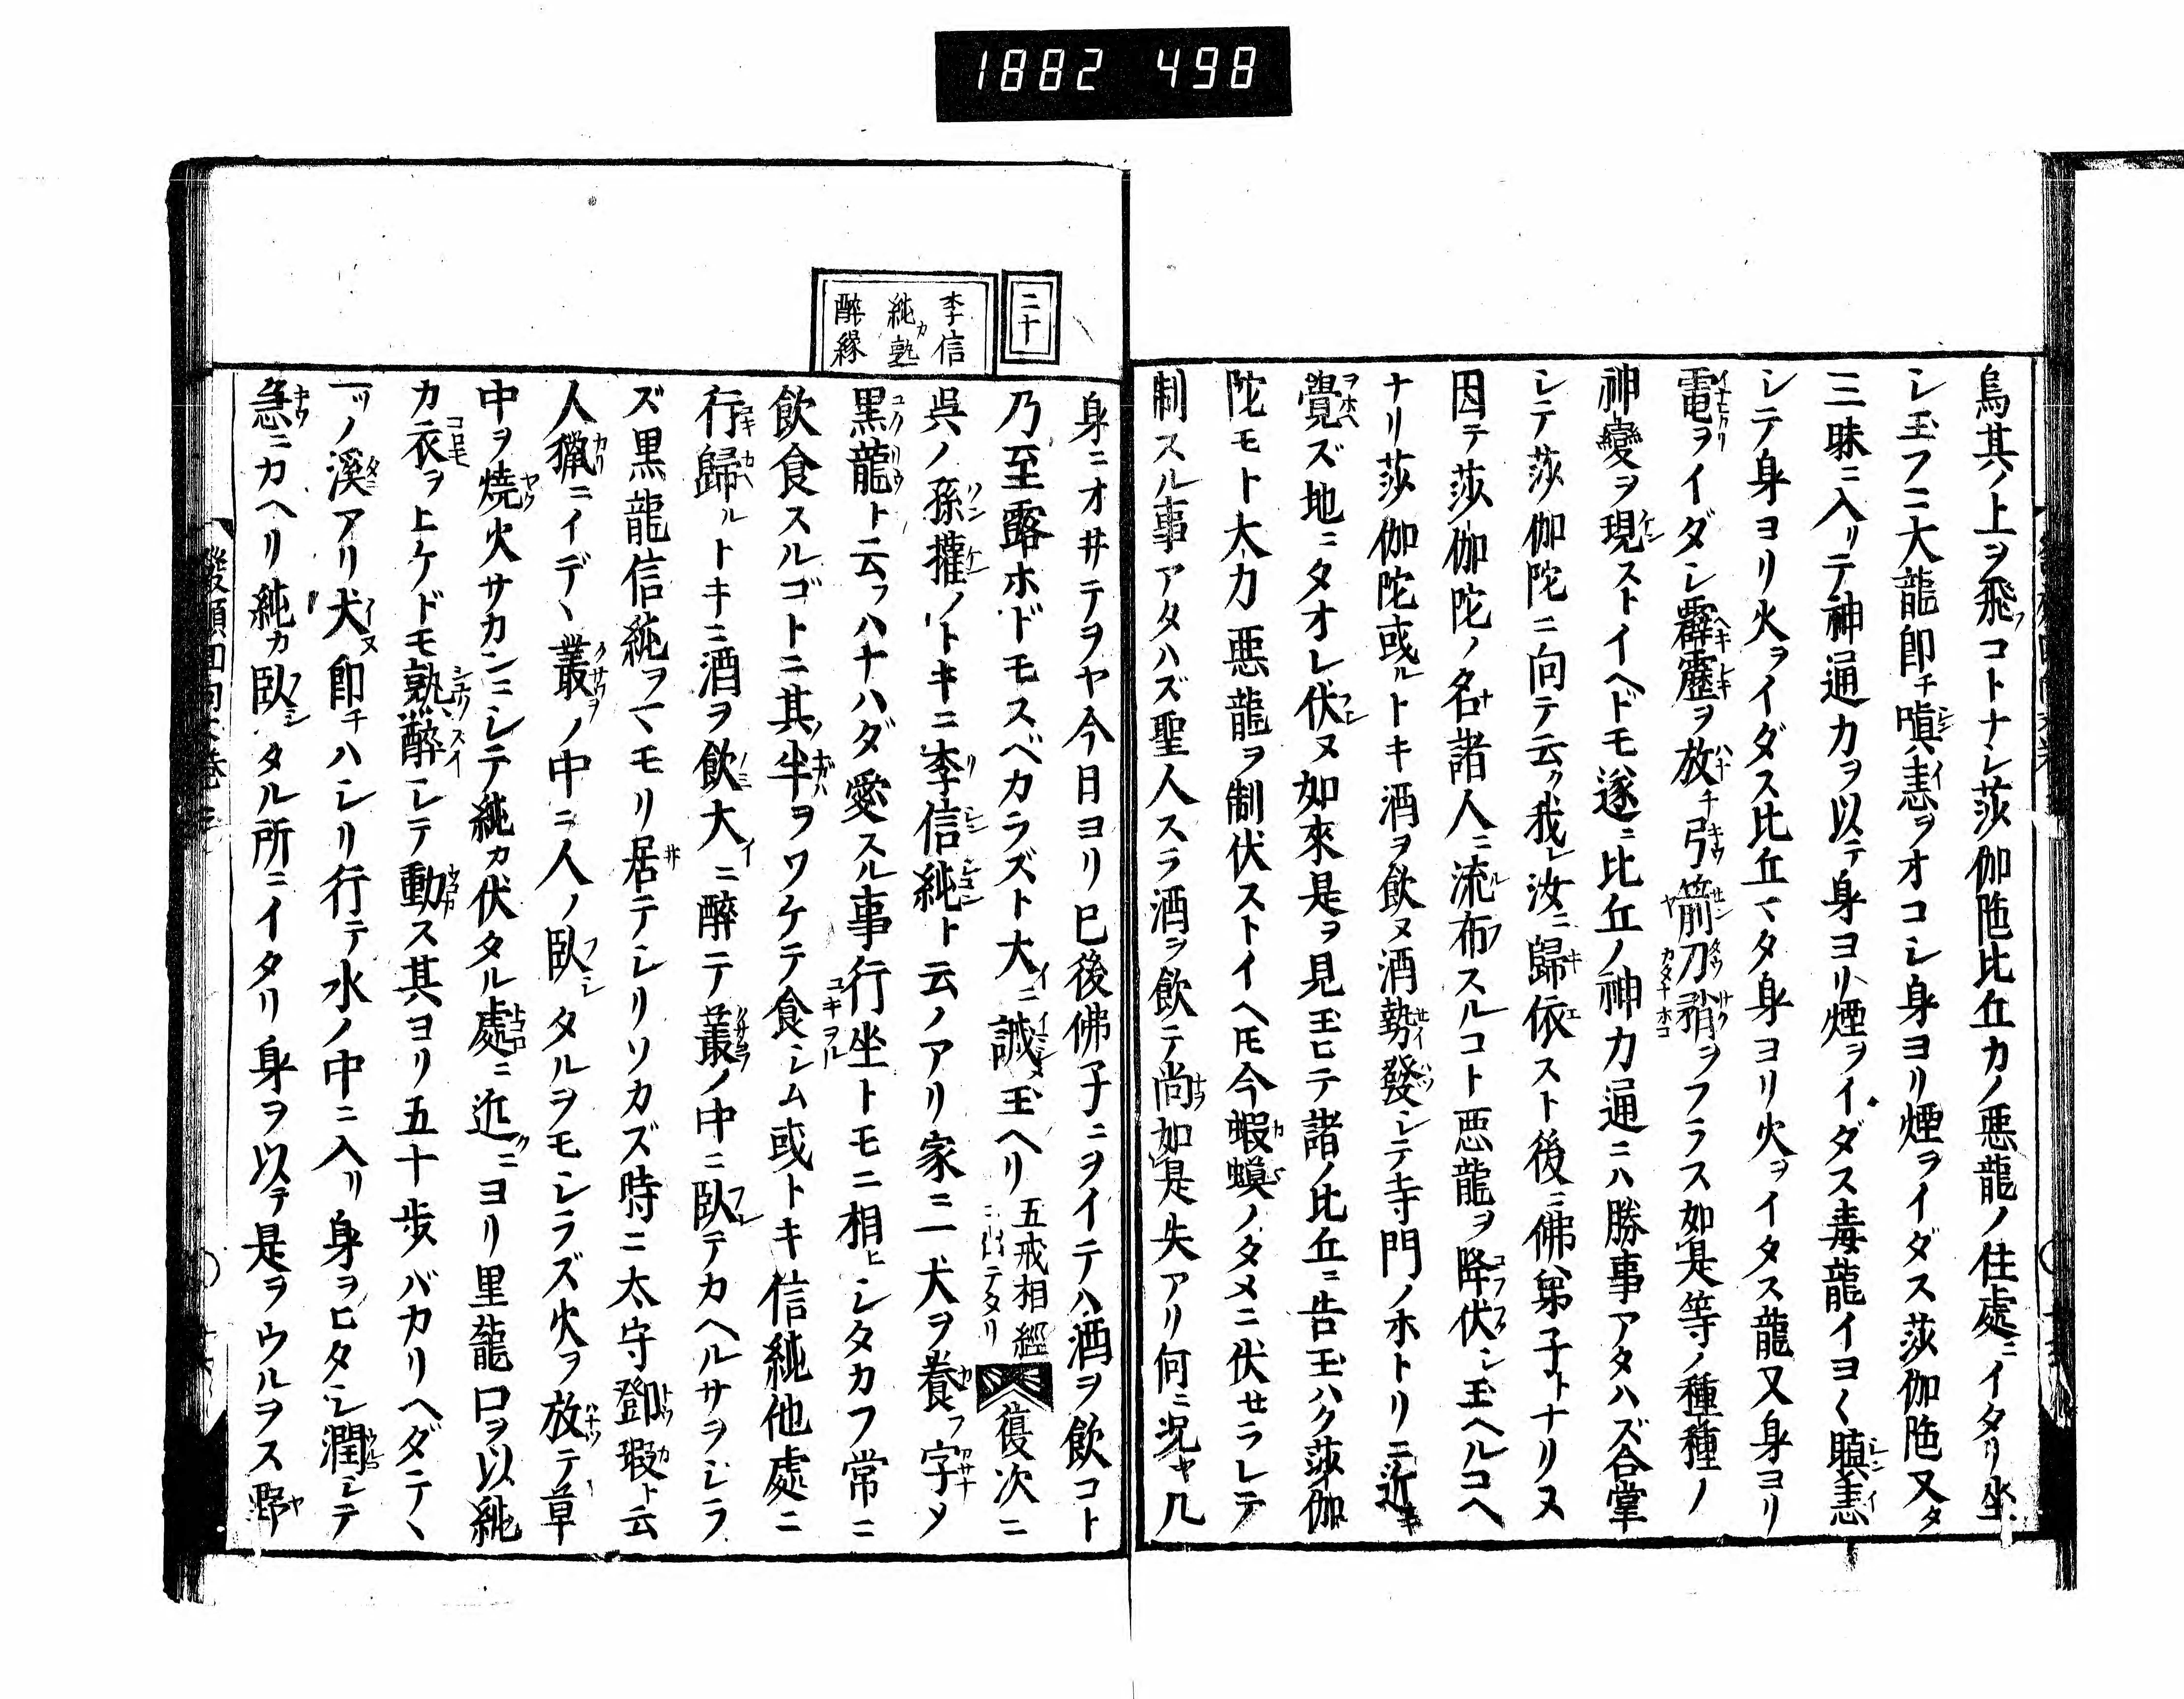 1882 498
烏其ノ上ヲ飛コトナシ莎伽陁比丘カノ悪龍ノ住處ニイタリ坐
シ玉フニ大龍即チ嗔恚ヲオコシ身ヨリ煙ヲイダス莎伽陁又タ
三昧ニ入リテ神通力ヲ以テ身ヨリ煙ヲイダス毒龍イヨ〱瞋恚
シテ身ヨリ火ヲイダス比丘マタ身ヨリ火ヲイタス龍又身ヨリ
電ヲイダシ霹靂ヲ放チ弓箭刀矟ヲフラス如是等ノ種種ノ
神變ヲ現ストイヘドモ遂ニ比丘ノ神力通ニハ勝事アタハズ合掌
シテ莎伽陀ニ向テ云ク我レ汝ニ歸依スト後ニ佛弟子トナリヌ
因テ莎伽陀ノ名諸人ニ流布スルコト悪龍ヲ降伏シ玉ヘルコヘ
ナリ莎伽陀或ルトキ酒ヲ飲ヌ酒勢發シテ寺門ノホトリニ近キ
覺ズ地ニタオレ伏ヌ如來是ヲ見玉ヒテ諸ノ比丘ニ告玉ハク莎伽
陀モト大力悪龍ヲ制伏ストイヘ𪜈今蝦蟆ノタメニ伏セラレテ
制スル事アタハズ聖人スラ酒ヲ飲テ尚如是失アリ何ニ況ヤ凡
二十
李信
純カ熟
醉縁
身ニオ井テヲヤ今日ヨリ已後佛子ニヲイテハ酒ヲ飲コト
乃至露ホドモスベカラズト大ニ誡玉ヘリ 五戒相經ニ出テタリ 復次ニ
呉ノ孫權ノトキニ李信純ト云ノアリ家ニ一犬ヲ養フ字メ
黒龍ト云フハナハダ愛スル事行坐トモニ相ヒシタカフ常ニ
飲食スルゴトニ其半ヲワケテ食シム或トキ信純他處ニ
行歸ルトキニ酒ヲ飲大ニ醉ニテ叢ノ中ニ臥テカヘルサヲシラ
ズ黒龍信純ヲマモリ居テシリソカズ時ニ太守鄧瑕ト云
人獵ニイデヽ叢ノ中ニ人ノ臥タルヲモシラズ火ヲ放テ草
中ヲ燒火サカンニシテ純カ伏タル處ニ近クニヨリ里龍口ヲ以純
カ衣ヲ上ケドモ熟醉シテ動ス其ヨリ五十歩バカリヘダテヽ
一ツノ溪アリ犬即チハシリ行テ水ノ中ニ入リ身ヲヒタシ潤シテ
急ニカヘリ純カ臥タル所ニイタリ身ヲ以テ是ヲウルヲス野